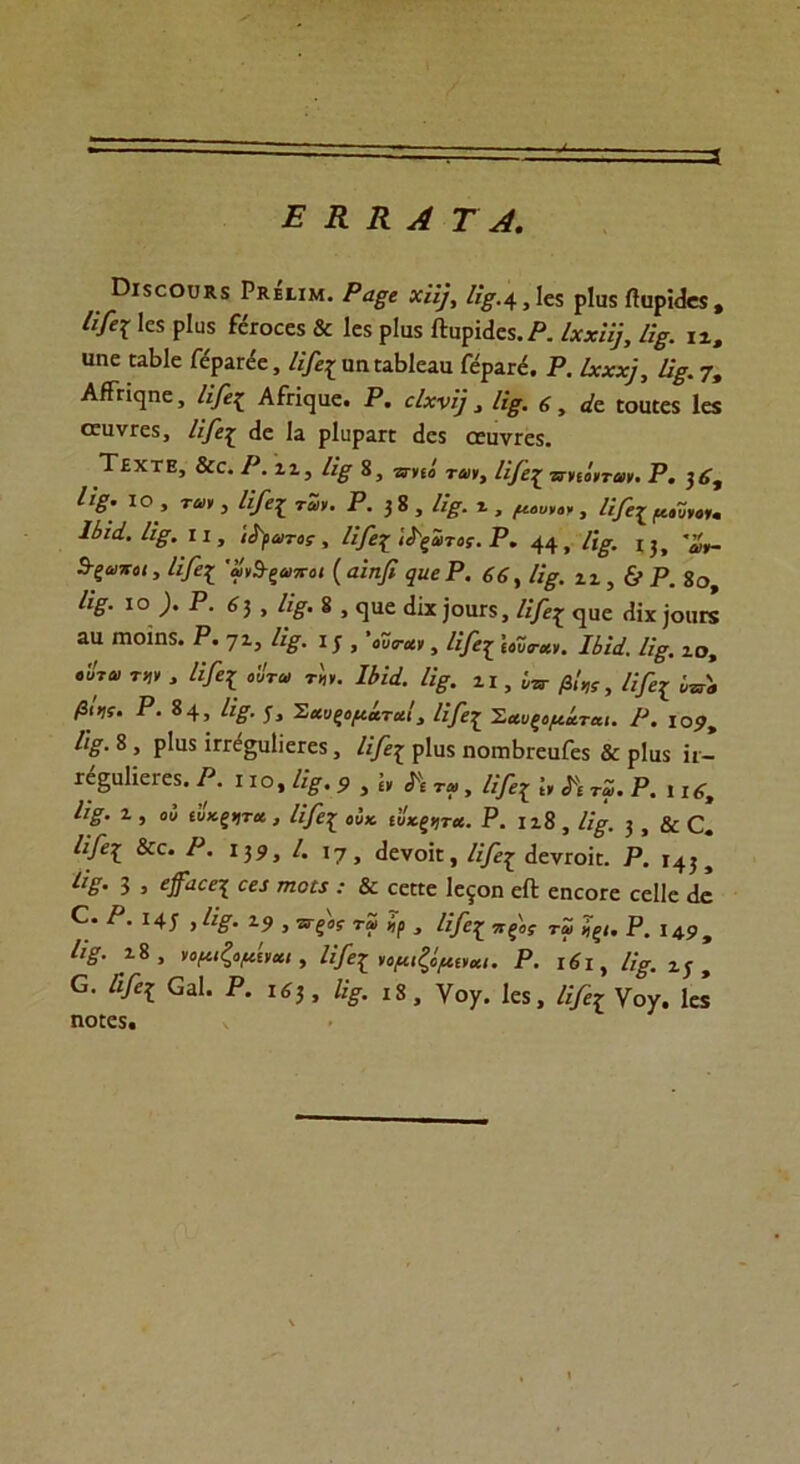 ERRATA.
Discours Prélim. Page xiij, lig. 4, les plus ſtupides,
liſez les plus féroces & les plus ſtupides. P. lxxiij, lig. 12,
une table ſéparée, liſez un tableau ſéparé. P. lxxxj, lig. 7,
Affriqne, liſez Afrique. P. clxvij, lig. 6, de toutes les
œuvres, liſez de la plupart des œuvres.
Texte, &c. P. 22, lig 8, ϖνεό των, liſez ϖνεόντων. P. 36,
lig. 10, των, liſez τῶν. P. 38, lig. 2, μουνον, liſez μοῦνον.
Ibid. lig. 11, ἱδρωτος, liſez ἱδρῶτος. P. 44, lig. 13, ἄν-
θρωποι, liſez ἄνθρωποι (ainſi que P. 66, lig. 22, & P. 80,
lig. 10). P. 63, lig. 8, que dix jours, liſez que dix jours
au moins. P. 72, lig. 15, 'οῦσαν, liſez ἐοῦσαν. Ibid. lig. 20,
οὕτω την, liſez οὕτω τὴν. Ibid. lig. 21, ὑϖ βίης, liſez ὑϖὸ
βίης. P. 84, lig. 5, Σαυρομάταί, liſez Σαυρομάται. P. 109,
lig. 8, plus irrégulieres, liſez plus nombreuſes & plus ir-
régulieres. P. 110, lig. 9, ἐν δὲ τω, liſez ἐν δὲ τῶ. P. 116,
lig. 2, οὐ εὔκρητα, liſez οὐκ εὔκρητα. P. 128, lig. 3, & C.
liſez &c. P. 139, l. 17, devoit, liſez devroit. P. 143,
lig. 3, effacez ces mots : & cette leçon eſt encore celle de
C. P. 145, lig. 29, ϖρὸς τῶ ἦρ, liſez πρὸς τῶ ἦρι. P. 149,
lig. 28, νομιζομέναι, liſez νομιζόμεναι. P. 161, lig. 25,
G. liſez Gal. P. 163, lig. 18, Voy. les, liſez Voy. les
notes.